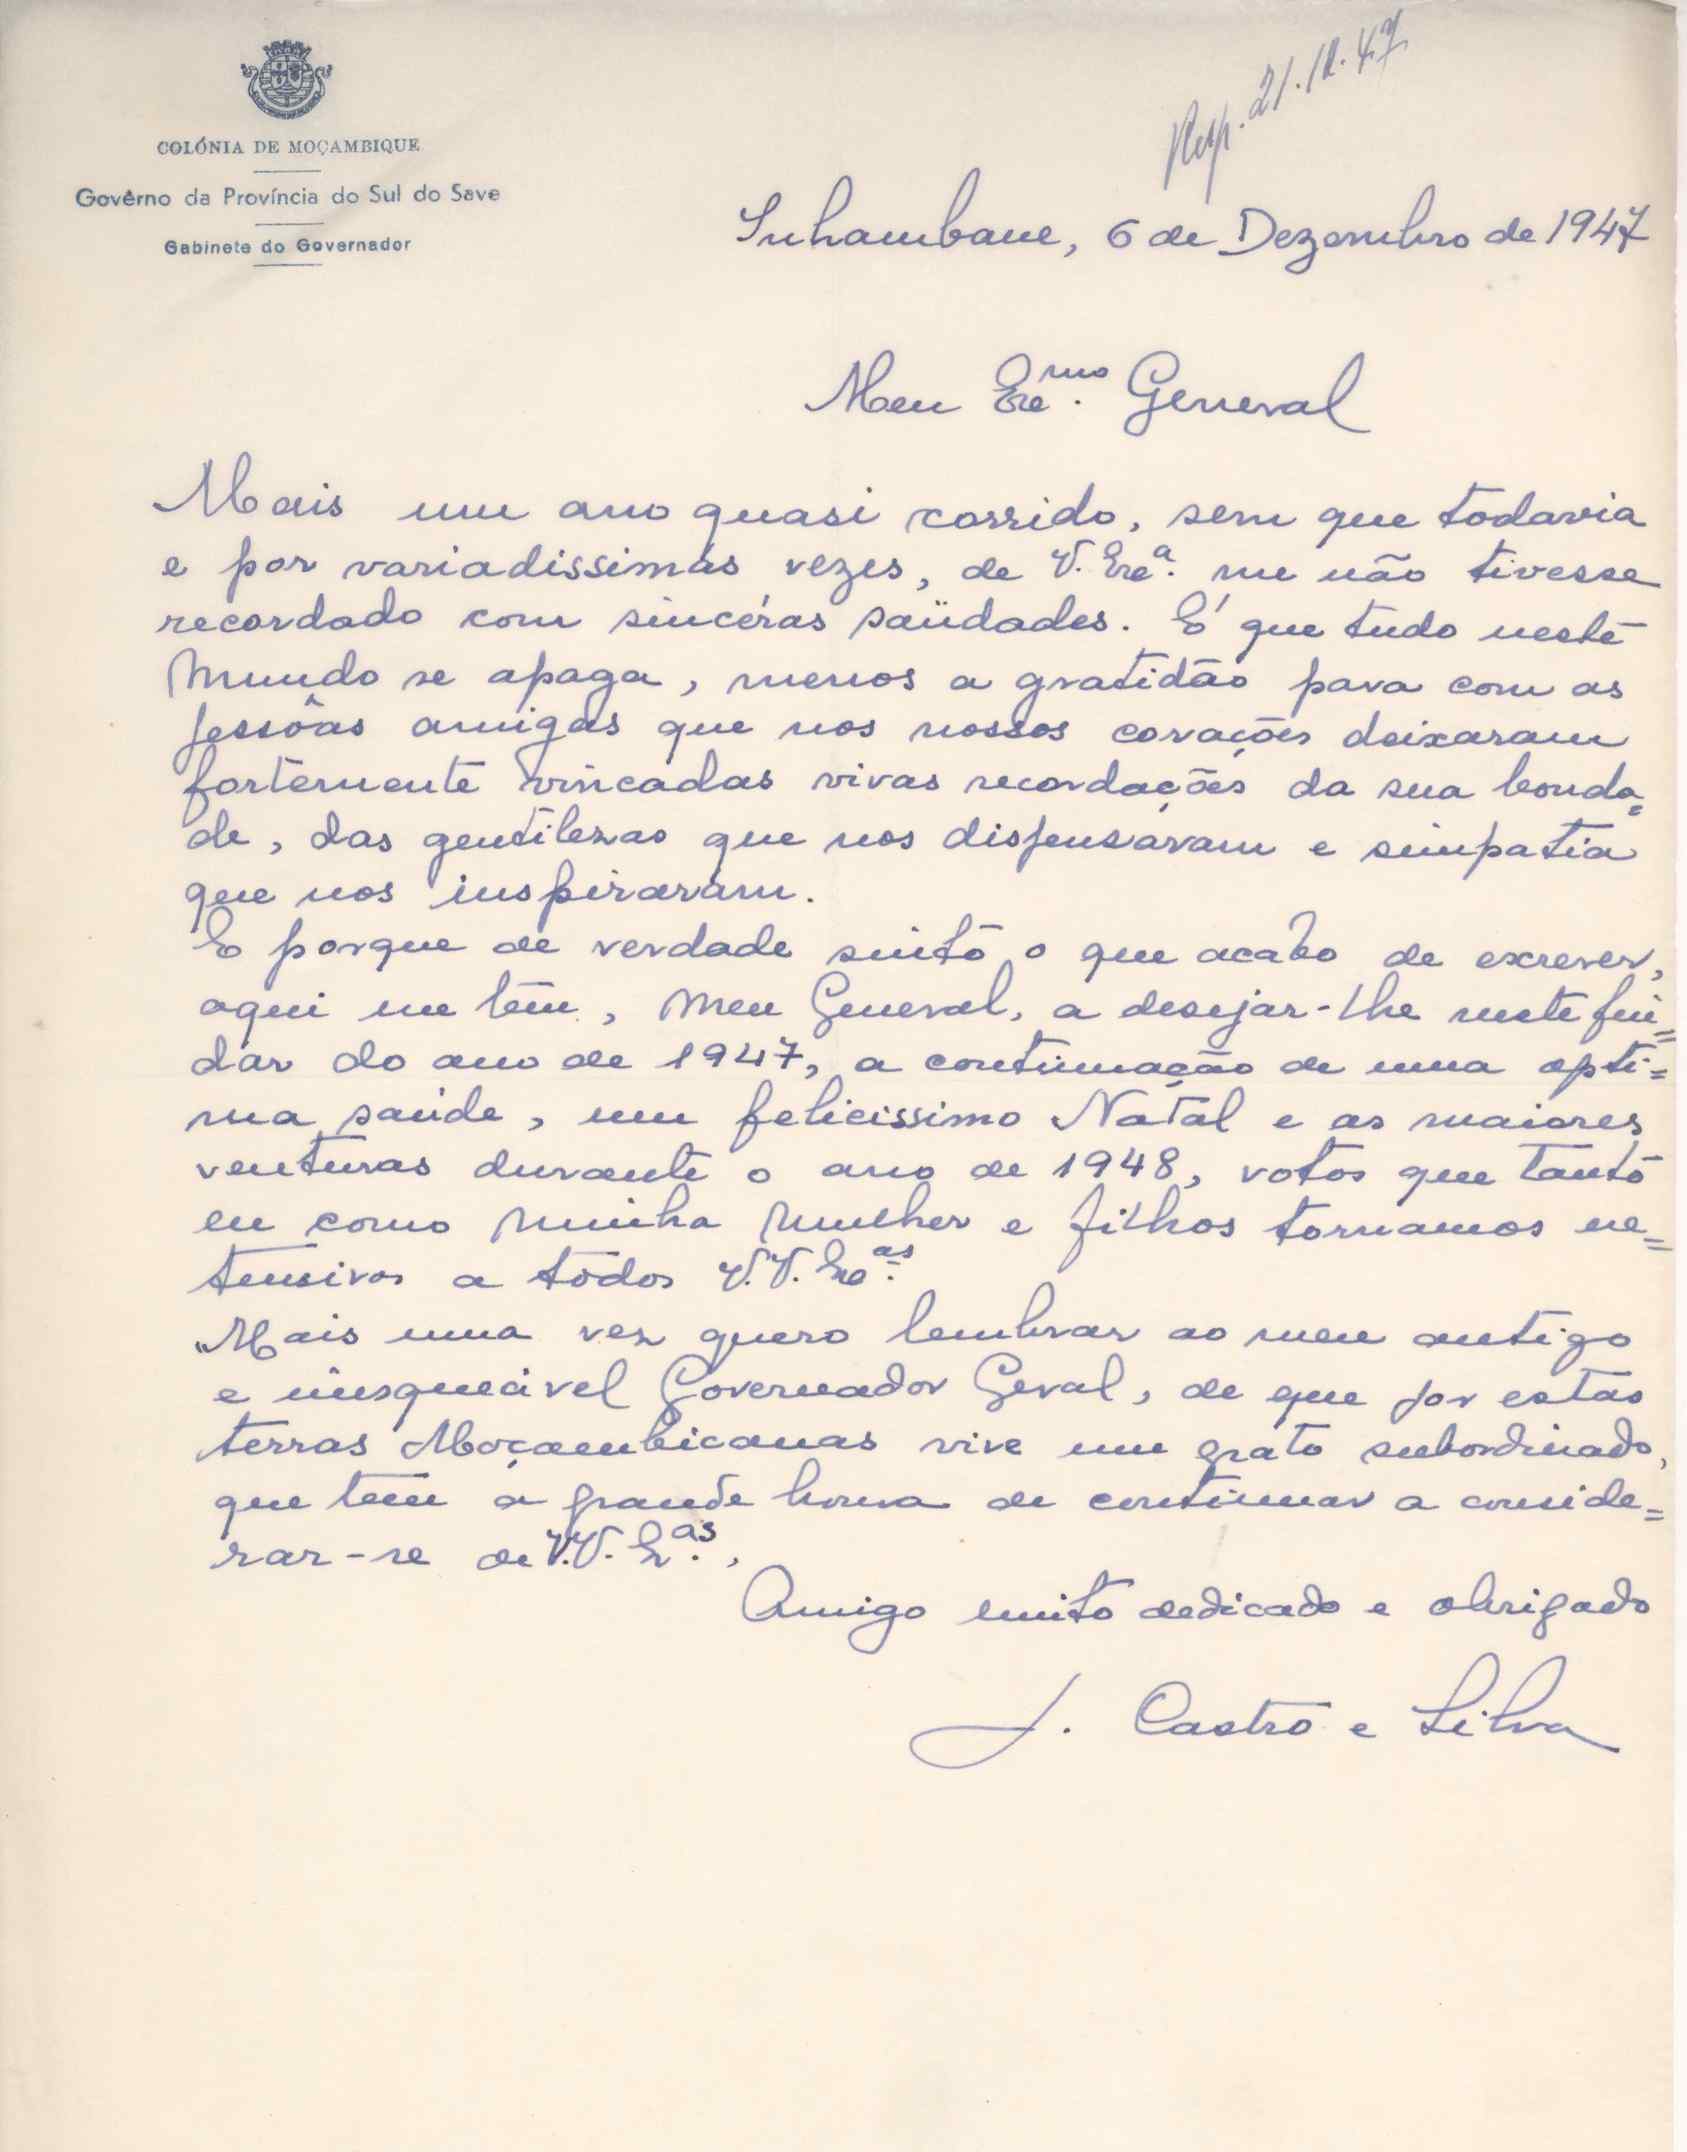 Resp. 21.12.47
COLÓNIA DE MOÇAMBIQUE
Govêrno da Província do Sul do Save
Gabinete do Governador
Inhambane, 6 de Dezembro de 1947
Meu Exmo. General
Mais um ano quasi corrido, sem que todavia
e por variadissimas vezes, de V. Exa. me não tivesse
recordado com sincéras saüdades. É que tudo neste
Mundo se apaga, menos a gratidão para com as
pessôas amigas que nos nossos corações deixaram
fortemente vincadas vivas recordações da sua bonda=
de, das gentilezas que nos dispensavam e simpatia
que nos inspiraram.
E porque de verdade sinto o que acabo de escrever,
aqui me tem, Meu General, a desejar-lhe neste fin=
dar do ano de 1947, a continuação de uma opti=
ma saúde, um felicissimo Natal e as maiores
venturas durante o ano de 1948, votos que tanto
eu como minha Mulher e filhos tornamos ex=
tensivos a todos V.V. Exas.
Mais uma vez quero lembrar ao meu antigo
e inesquecivel Governador Geral, de que por estas
terras Moçambicanas vive um grato subordinado,
que tem a grande honra de continuar a conside=
rar-se de V.V. Exas.,
Amigo muito dedicado e obrigado
J. Castro e Silva